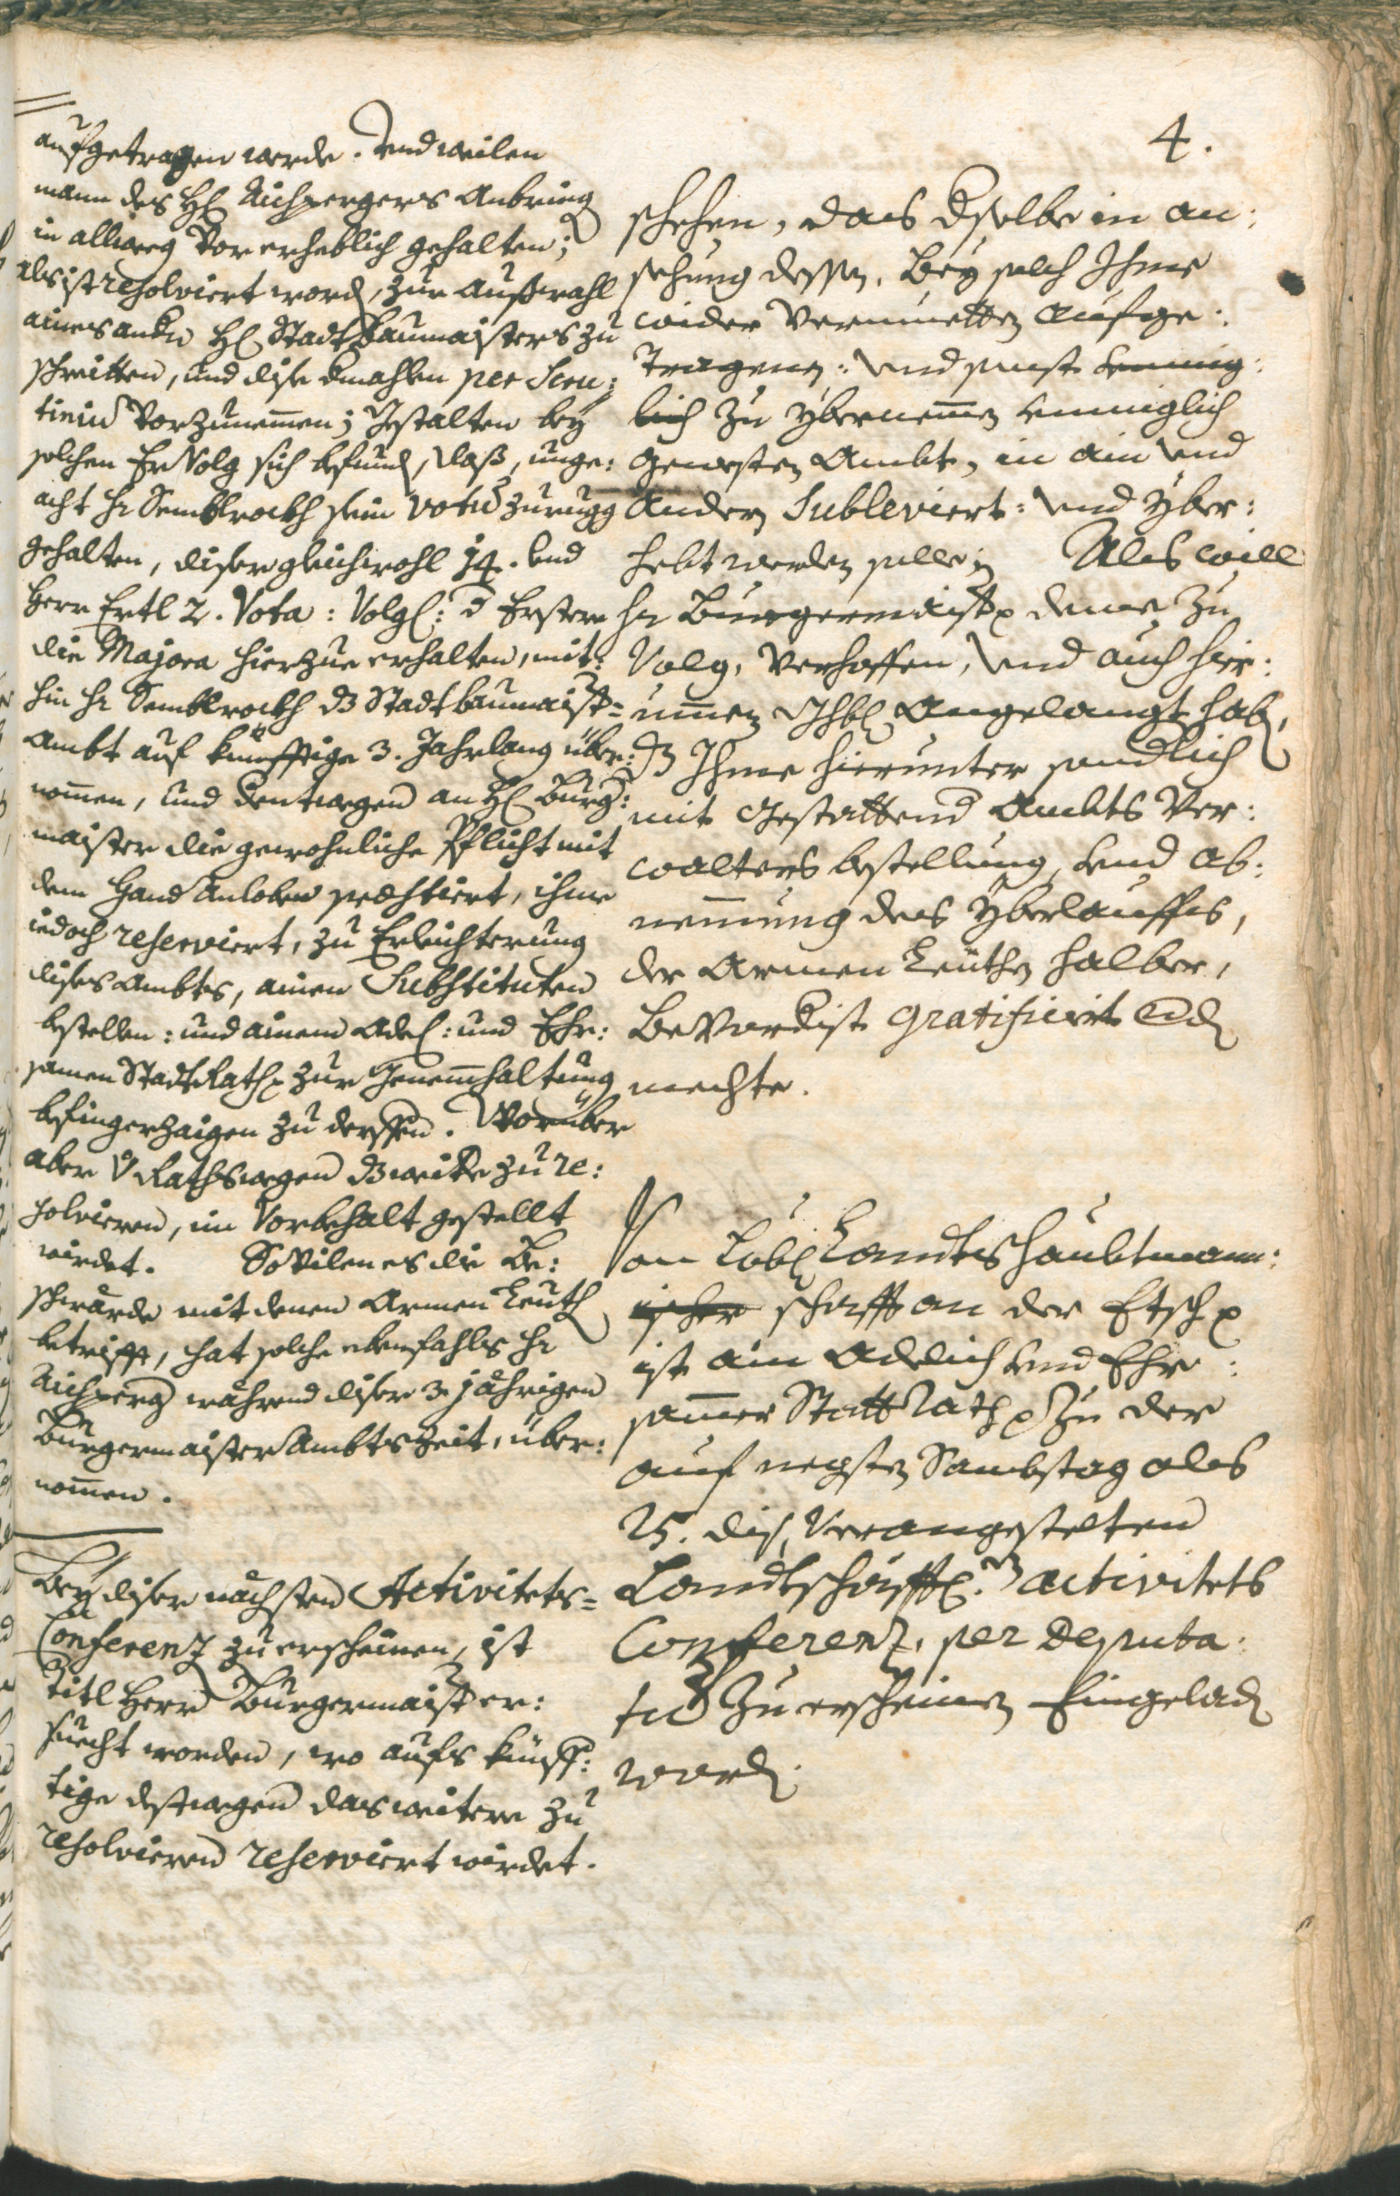 4.
aufgetragen werde. Und weilen
mann des H: Aichpergers Anbring
in allweeg vor erheblich gehalten;
als ist resolviert word, zur Auswahl
aines andn H: Stadtbaumaisters zu
schreitten, und dise dmahlen per Scru:
tiniũ vorzunemen; Gestalten bey
solchen Ervolg sich befund, dass, unge:
acht Hr Sembkroth sein votũ zurugg
gehalten, diser gleichwohl 14. und
Herr Ertl 2. Vota: Volgl: d Erstere
die Majora hierzue erhalten, mit:
hin Hr Sembkroth dz Stadtbaumaister=
Ambt auf künfftige 3. Jahrlang über:
nommen, und dentwegen an H: Burg:
maister die gewohnliche Pflicht mit
dem Hand Anloben præstiert, ihme
iedoch reserviert, zu Erleichterung
dises Ambtes, ainen Substituten
bestellen: und ainem Adel: und Ehr:
samen StadtRath zur Genemhaltung
befingerzaigen zu derffen. Worüber
aber v Rathswegen dz weitere zu re:
solvieren, im Vorbehalt gestellt
wirdet. Sovilen es die Be:
schwärde mit denen Armen Leuth
betrifft, hat solche ebenfahls Hr
Aichperg während diser 3 jährigen
Burgermaister Ambtszeit, über:
nommen.
Bey diser nächsten Activitets=
Conferenz zu erscheinen, ist
Titl Herr Burgermaister er:
suecht worden, wo aufs künff:
tige destwegen das weitere zu
resolvieren reserviert wirdet.
schehen, das dselbe in an:
sehung dessen, bey solch Ihme
wider vermuetten aufge:
tragenen: und sunst
zu ybernemen
gewesten Ambt, in ain und
andern Subleviert: und yber:
hebt werden solle; Als will
Hr Burgermaister deme zu
Volg, verhoffen, und auch hie:
umen angelangt hab,
dz Ihme hierunter
mit Gestattend Ambts Ver:
walters bestellung, und ab:
nemmung des yberlauffes,
der Armen Leüthen halber,
bevordist gratificirt
mechte.
Von Löbl: Landtshaubtmann:
schafft an der Etsch
ist ain Adelich und Ehr:
samer Statt Rath zu der
auf negsten Sambstag als
25. dis, verangestelten
Landtschäfftl: activitets
Conferenz, per Deputa:
tũ zu erscheinen Eingelad
word.